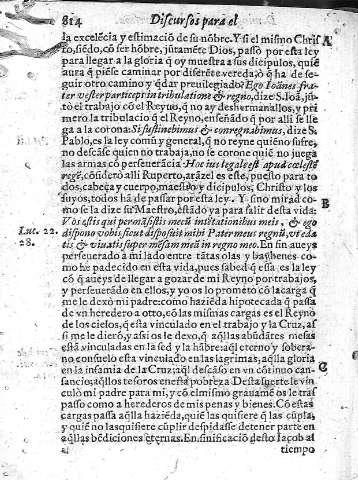 814 Discursos para el
la excelẽcia y estimaciõ de su nõbre. Y si el mismo Chris A
to, siẽdo, cõ ser hõbre, jũtamẽte Dios, passò por esta ley
para llegar a la gloria q̃ oy muestra a sus dicipulos, quiẽ
aura q̃ piẽse caminar por diferẽte vereda, ò q̃ ha de se
guir otro camino y q̃dar preuilegiado? Ego Ioānes fra-
ter vester particeps in tribulatione & regno, dize S. Ioã, jũ-
tò el trabajo cõ el Reyno, q̃ no ay desherma nallos, y pri
mero la tribulaciõ q̃ el Reyno, enseñãdo q̃ por alli se lle
ga a la corona: Si sustinebimus & conregnabimus, dize S.
Pablo, es la ley comũ y general, q̃ no reyne quiẽ no sufre,
no descãse quien no trabaja, no se corone quiẽ no juega
las armas cõ perseuerãcia. Hoc ius legale est apud cœlestẽ
regẽ, cõsiderò alli Ruperto, arãzel es este, puesto para to
dos, cabeça y cuerpo, maestro y dicipulos, Christo y los
suyos, todos hã de passar por esta ley. Y sino mirad co- B
mo se la dize su Maestro, estãdo ya para salir desta vida:
Luc. 22. Vos estis qui permãsistis mecũ in tẽtationibus meis, & ego
28. dispono vobis sicut disposuit mihi Pater meus regnũ, vt eda
tis & viuatis super mẽsam meã in regno meo. En fin aueys
perseuerado a mi lado entre tãtas olas y bayuenes co-
mo he padecido en esta vida, pues sabed q̃ essa es la ley
cõ q̃ aueys de llegar a gozar de mi Reyno por trabajos,
y perseuerãdo en ellos, y yo os lo prometo cõ la carga q̃
me le dexò mi padre: como haziẽda hipotecada q̃ passa
de vn heredero a otro, cõ las mismas cargas es el Reyno
de los cielos, q̃ esta vinculado en el trabajo y la Cruz, as̃
si me le dierõ, y assi os le dexo, q̃ aq̃llas abũdãtes mesas
està vinculadas en la sed y la hãbre: aq̃l eterno y sobera
no consuelo esta vinculado en las lagrimas, aq̃lla gloria
en la infamia de la Cruz; aq̃l descãso en vn cõtinuo can- C
sancio, aq̃llos tesoros en esta pobreza. Desta suerte le vin
culò mi padre para mi, y cõ el mismo grauamẽ os le tras
passo como a herederos de mis penas y bienes. Cõ estas
cargas passa aq̃lla haziẽda, quiẽ las quisiere q̃ las cũpla,
y quiẽ no las quisiere cũplir despidasse detener parte en
aq̃llas bẽdiciones eternas. En sinificaciõ desto Iacob al
tiempo